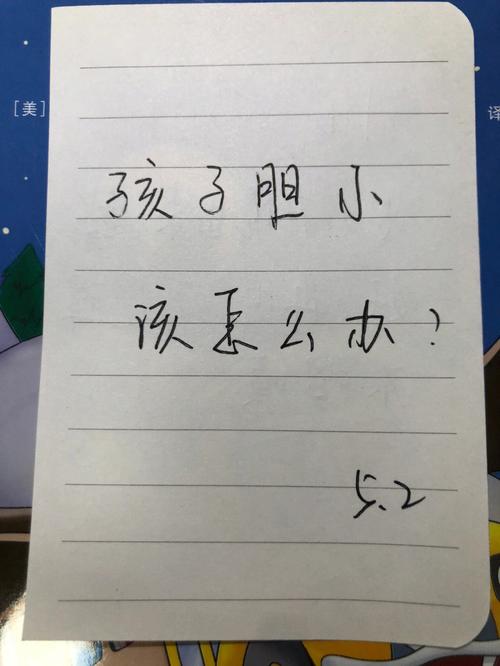 [美]
译
孩子胆小
该怎么办?
5.2